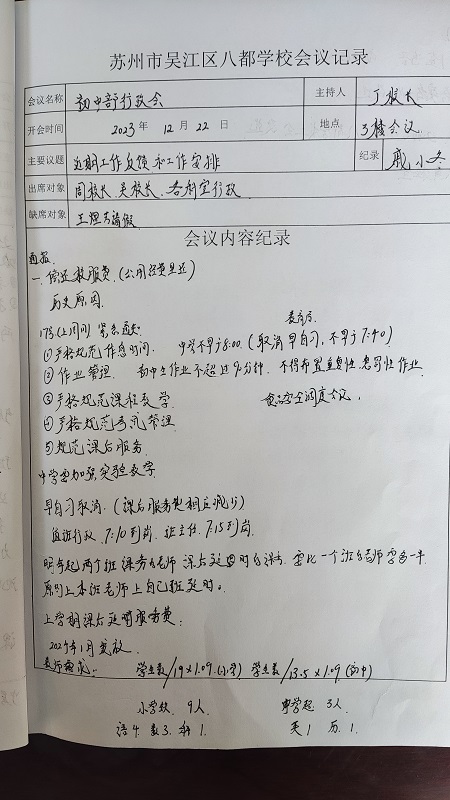 苏州市吴江区八都学校会议记录
会议名称 初中部行政会 主持人 丁校长
开会时间 2023年 12月 22日 地点 3楼会议
主要议题 近期工作反馈和工作安排 纪录 戚小冬
出席对象 周校长 吴校长 各科室行政
缺席对象 请假
会议内容纪录
通报
一. 偿还校服费.(公用经费里还)
历史原因.
173.(上周周) 紧急通知
教育局.
①严格规范作息时间. 中学不早于8:00.(取消早自习,不早于7:40)
②作业管理. 初中生作业不超过90分钟. 不得布置重复性.惩罚性作业.
③严格规范课程教学.
④严格规范考试管理
⑤规范课后服务.
中学要加强实验教学.
早自习取消.(课后服务费相应减少)
值班行政 7:10到岗. 班主任. 7:15到岗.
明年起两个班课务的老师 课后延时的课务. 要比一个班的老师要多一半.
原则上本班老师上自己班延时。
上学期课后延时服务费:
2024年1月发放.
学生数/19×1.09.(小学) 学生数/13.5×1.09(初中)
小学缺. 9人 中学超. 3人
语4. 数3. 科1. 英1 历1.